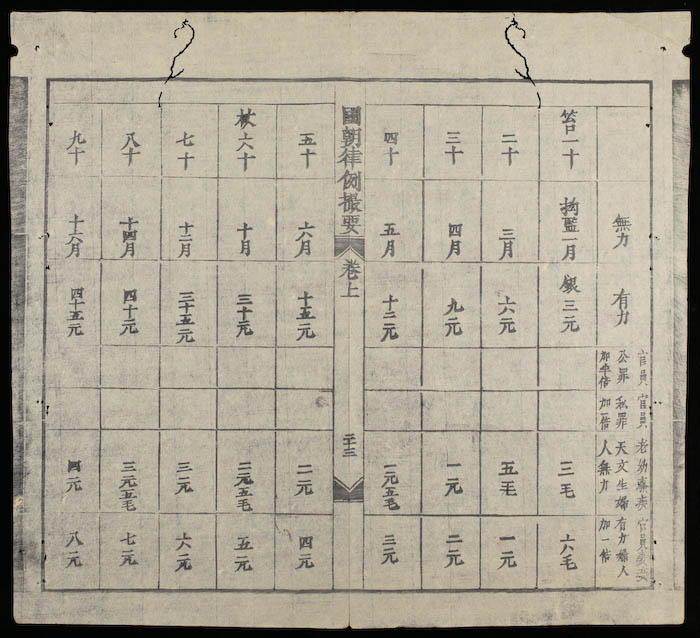 無力
有力
官員
公罪
加半倍
官員
私罪
加一倍
老幼廢疾
天文生婦
人無力
官員
有力婦人
加一倍
笞一十
拘監一月
銀三元
三毛
六毛
二十
三月
六元
五毛
一元
三十
四月
九元
一元
二元
四十
五月
十二元
一元五毛
三元
國朝律例撮要
卷上
二十三
五十
六月
十五元
二元
四元
杖六十
十月
三十元
二元五毛
五元
七十
十二月
三十五元
三元
六元
八十
十四月
四十元
三元五毛
七元
九十
十六月
四十五元
四元
八元